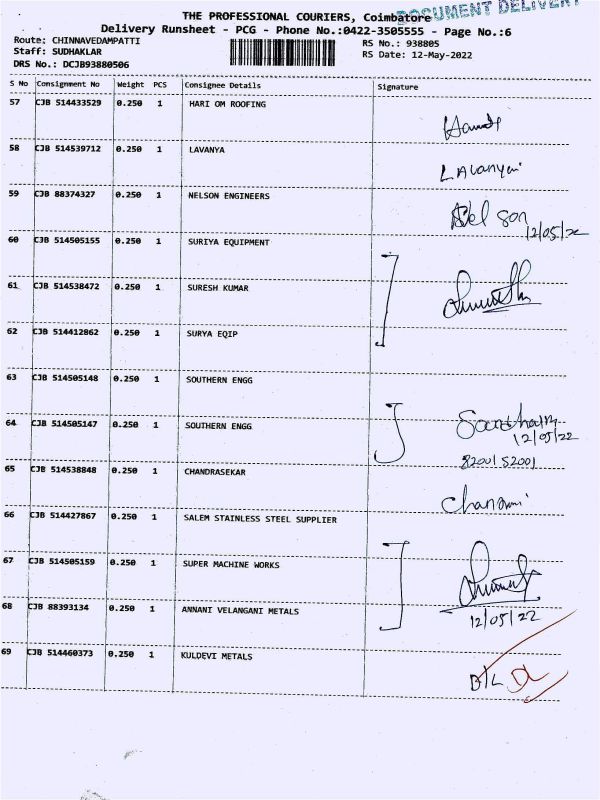 THE PROFESSIONAL COURIERS, Coimbatore
DOCUMENT DELIVERY
Delivery Runsheet - PCG - Phone No.:0422-3505555 - Page No.:6
Route: CHINNAVEDAMPATTI
RS No.: 938805
Staff: SUDHAKLAR
RS Date: 12-May-2022
DRS No.: DCJB93880506
S No Consignment No Weight PCS Consignee Details Signature
57 CJB 514433529 0.250 1 HARI OM ROOFING
58 CJB 514539712 0.250 1 LAVANYA
59 CJB 88374327 0.250 1 NELSON ENGINEERS
12/05/22
60 CJB 514505155 0.250 1 SURIYA EQUIPMENT
61 CJB 514538472 0.250 1 SURESH KUMAR
62 CJB 514412862 0.250 1 SURYA EQIP
63 CJB 514505148 0.250 1 SOUTHERN ENGG
64 CJB 514505147 0.250 1 SOUTHERN ENGG
12/05/22
82001 52001
65 CJB 514538848 0.250 1 CHANDRASEKAR
66 CJB 514427867 0.250 1 SALEM STAINLESS STEEL SUPPLIER
67 CJB 514505159 0.250 1 SUPER MACHINE WORKS
68 CJB 88393134 0.250 1 ANNANI VELANGANI METALS
12/05/22
69 CJB 514460373 0.250 1 KULDEVI METALS
D/L DL